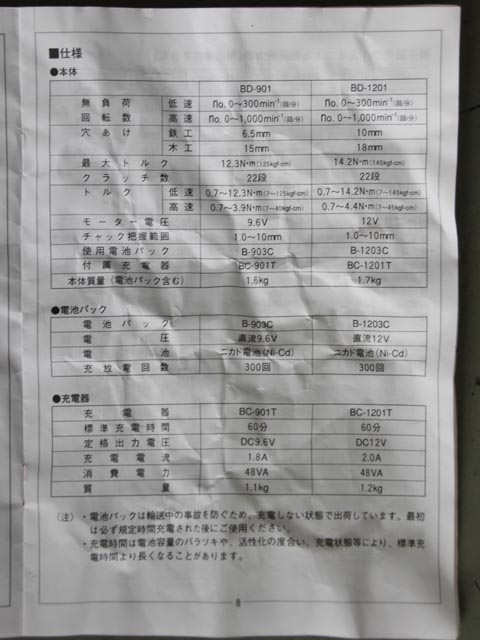 ■仕様
●本体
BD-901 BD-1201
無負荷 低速 no. 0〜300min⁻¹(回/分) no. 0〜300min⁻¹(回/分)
回転数 高速 no. 0〜1,000min⁻¹(回/分) no. 0〜1,000min⁻¹(回/分)
穴あけ 鉄工 6.5mm 10mm
木工 15mm 18mm
最大トルク 12.3N·m(125kgf-cm) 14.2N·m(145kgf-cm)
クラッチ数 22段 22段
トルク 低速 0.7〜12.3N·m(7〜125kgf-cm) 0.7〜14.2N·m(7〜145kgf-cm)
高速 0.7〜3.9N·m(7〜40kgf-cm) 0.7〜4.4N·m(7〜45kgf-cm)
モーター電圧 9.6V 12V
チャック把握範囲 1.0〜10mm 1.0〜10mm
使用電池パック B-903C B-1203C
付属充電器 BC-901T BC-1201T
本体質量(電池パック含む) 1.6kg 1.7kg
●電池パック
電池パック B-903C B-1203C
電圧 直流9.6V 直流12V
電池 ニカド電池(Ni-Cd) ニカド電池(Ni-Cd)
充放電回数 300回 300回
●充電器
充電器 BC-901T BC-1201T
標準充電時間 60分 60分
定格出力電圧 DC9.6V DC12V
充電電流 1.8A 2.0A
消費電力 48VA 48VA
質量 1.1kg 1.2kg
(注)・電池パックは輸送中の事故を防ぐため、充電しない状態で出荷しています。最初
は必ず規定時間充電された後にご使用ください。
・充電時間は電池容量のバラツキや、活性化の度合い、充電状態等により、標準充
電時間より長くなることがあります。
8